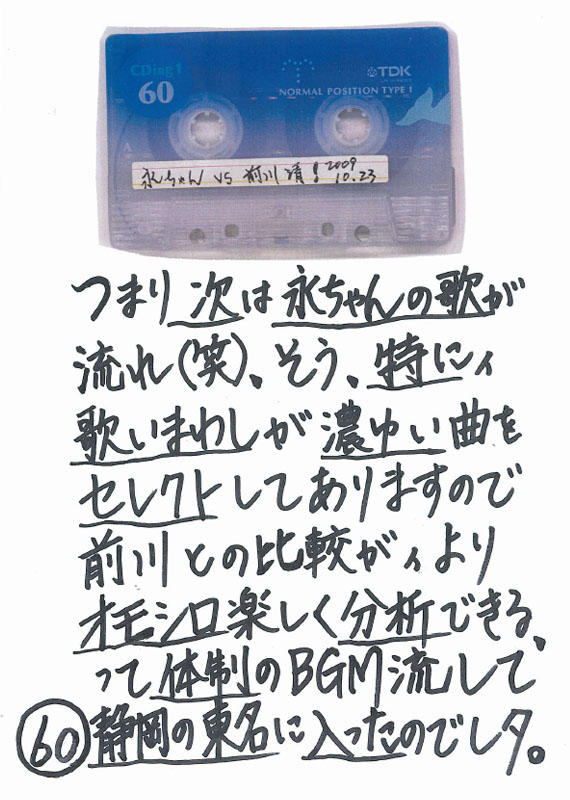 CDing 1
60
TDK
NORMAL POSITION TYPE I
A
永ちゃん vs 前川 清! 2009 10.23
つまり次は永ちゃんの歌が
流れ(笑)、そう、特にィ
歌いまわしが濃ゆい曲を
セレクトしてありますので
前川との比較がィより
オモシロ楽しく分析できる、
って体制のBGM流しで
60 静岡の東名に入ったのでしタ。